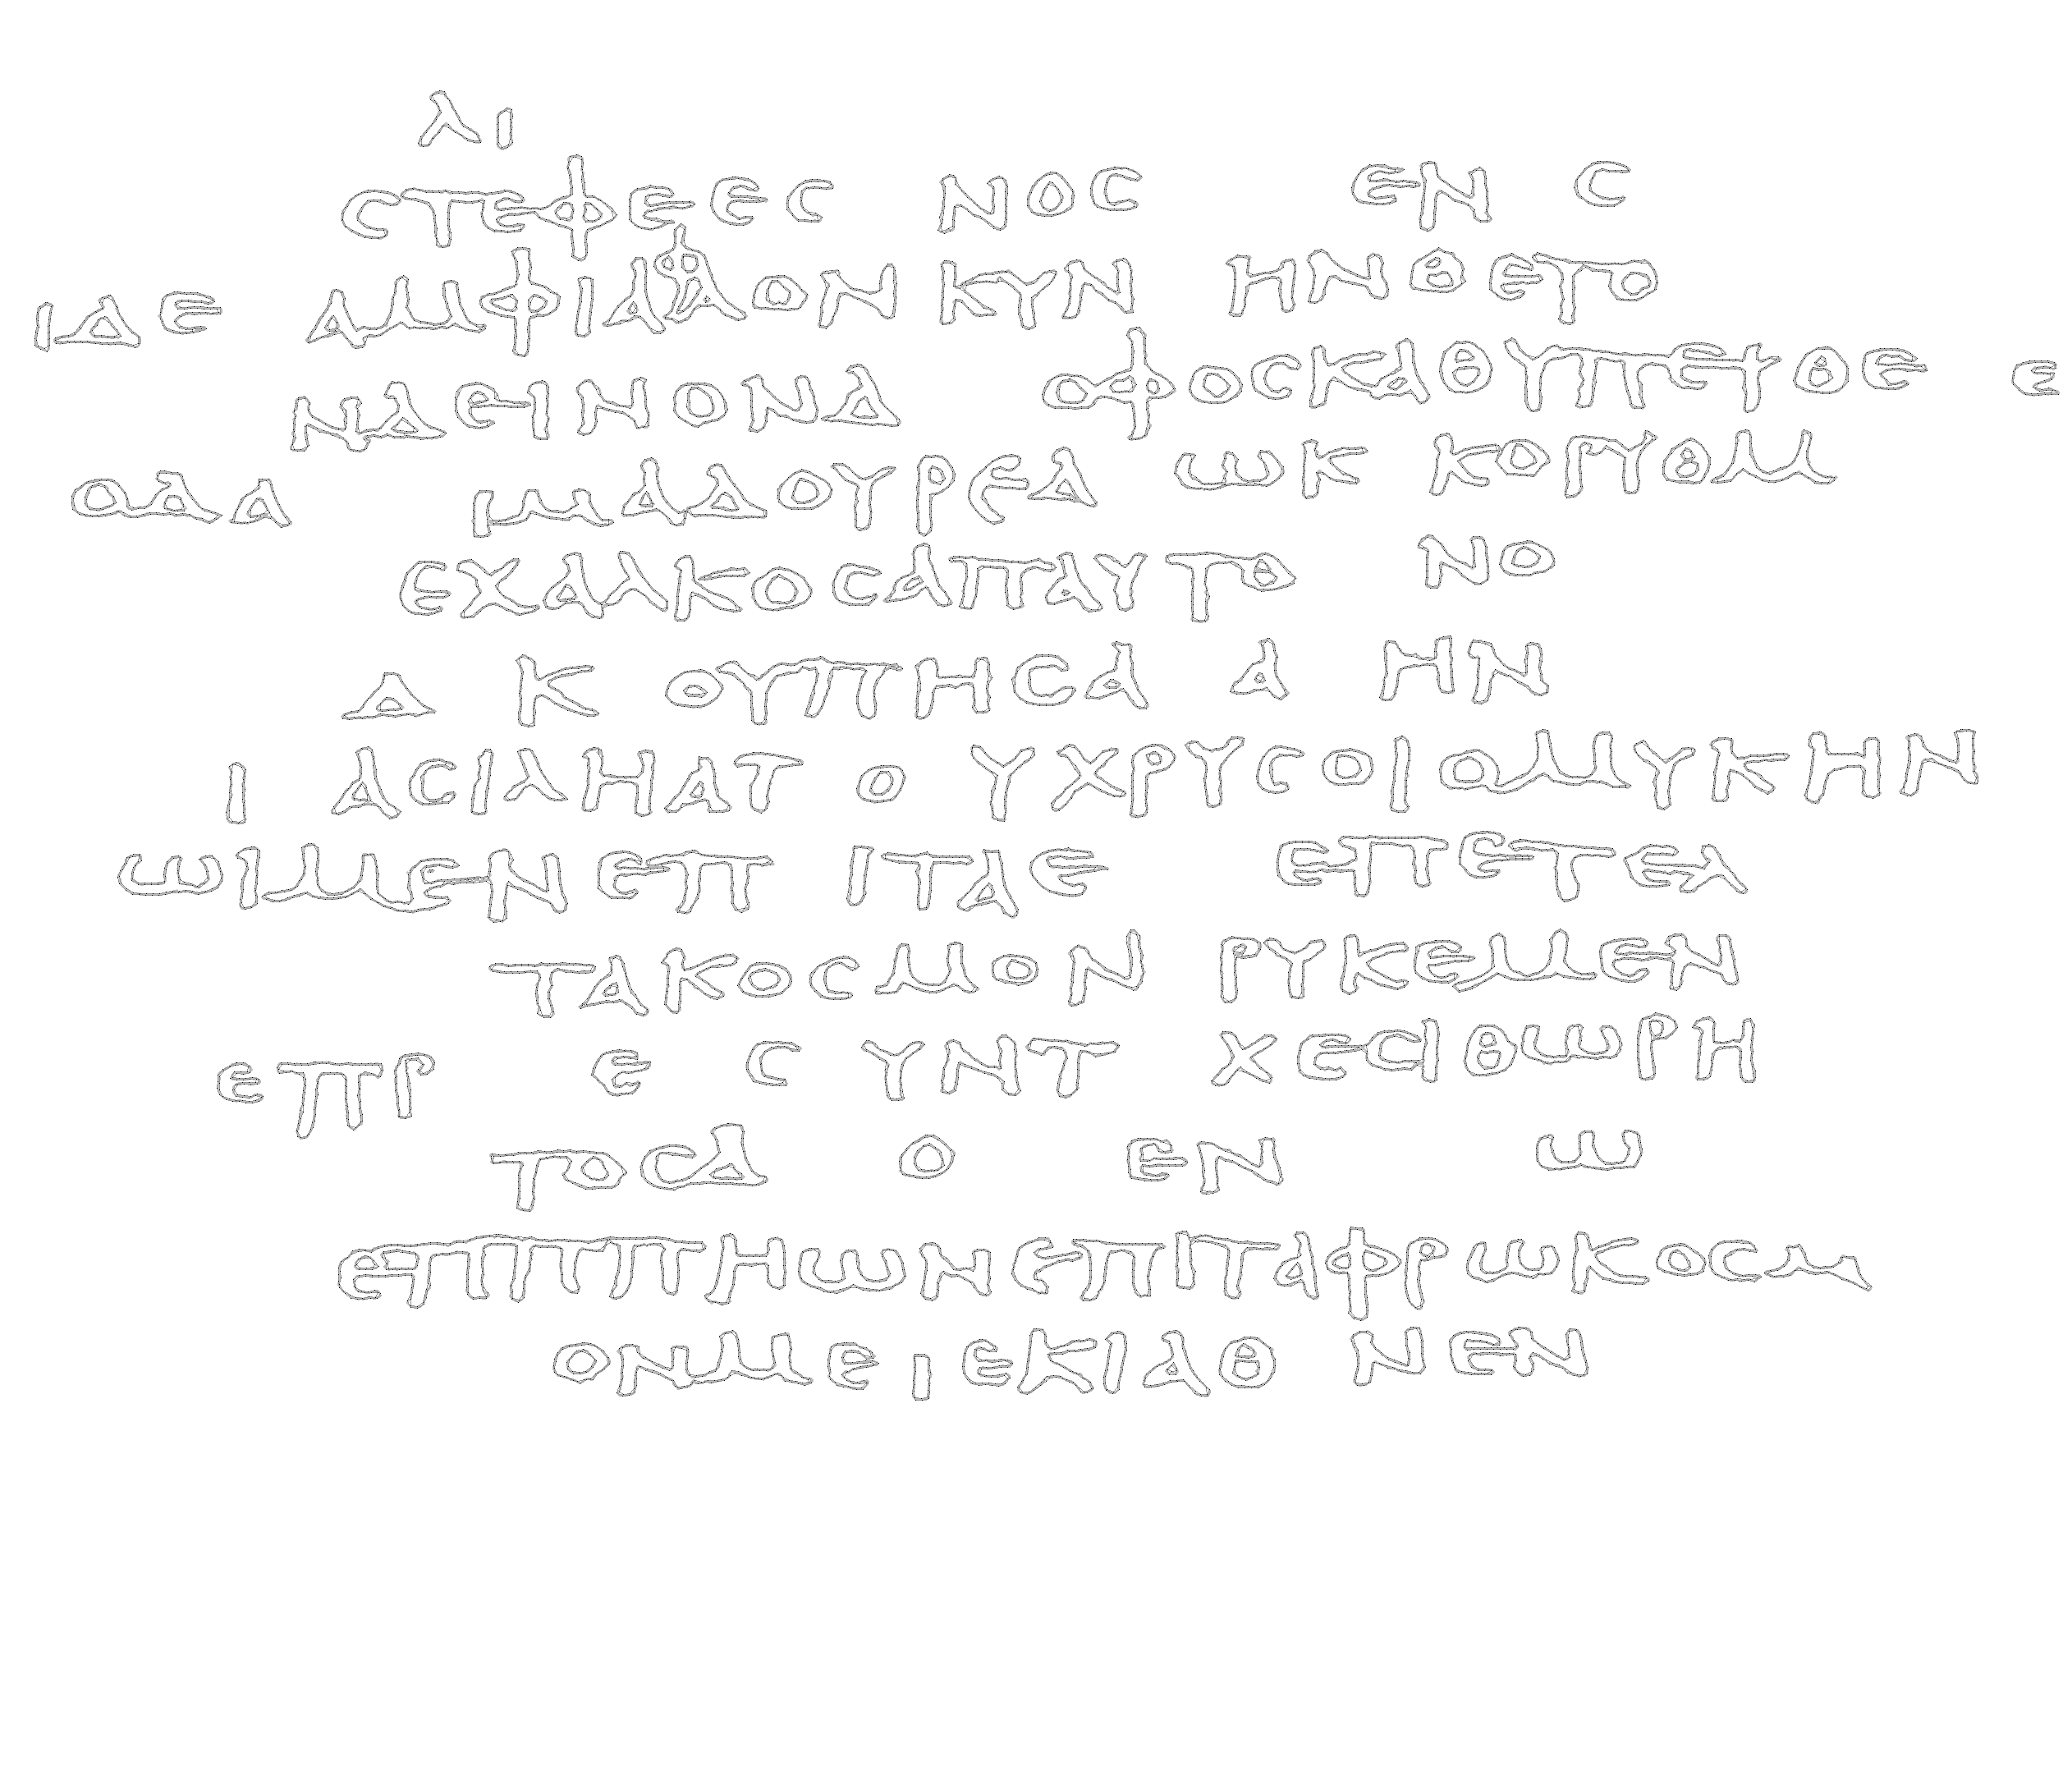 λι
ϲτεφεεϲ νοϲ εν ϲ
ιδε αμφιδφαον κυν ηνθετο
ναεινονδ οφοϲκαθυπερθε ε
οδα μαδουρεα ωκ κορυθομ
εχαλκοϲαπαυτο νο
δ κ ουπηϲα α ην
ι αϲιληατ ο υχρυϲοιομυκην
ωιμενεπ ιταε επετελ
τακοϲμον ρυκεμεν
επρ ε ϲ υντ χεϲιθωρη
τοϲδ ο εν ω
επππηωνεπιταφρωκοϲμ
ονμε ι εκιαθ νεν